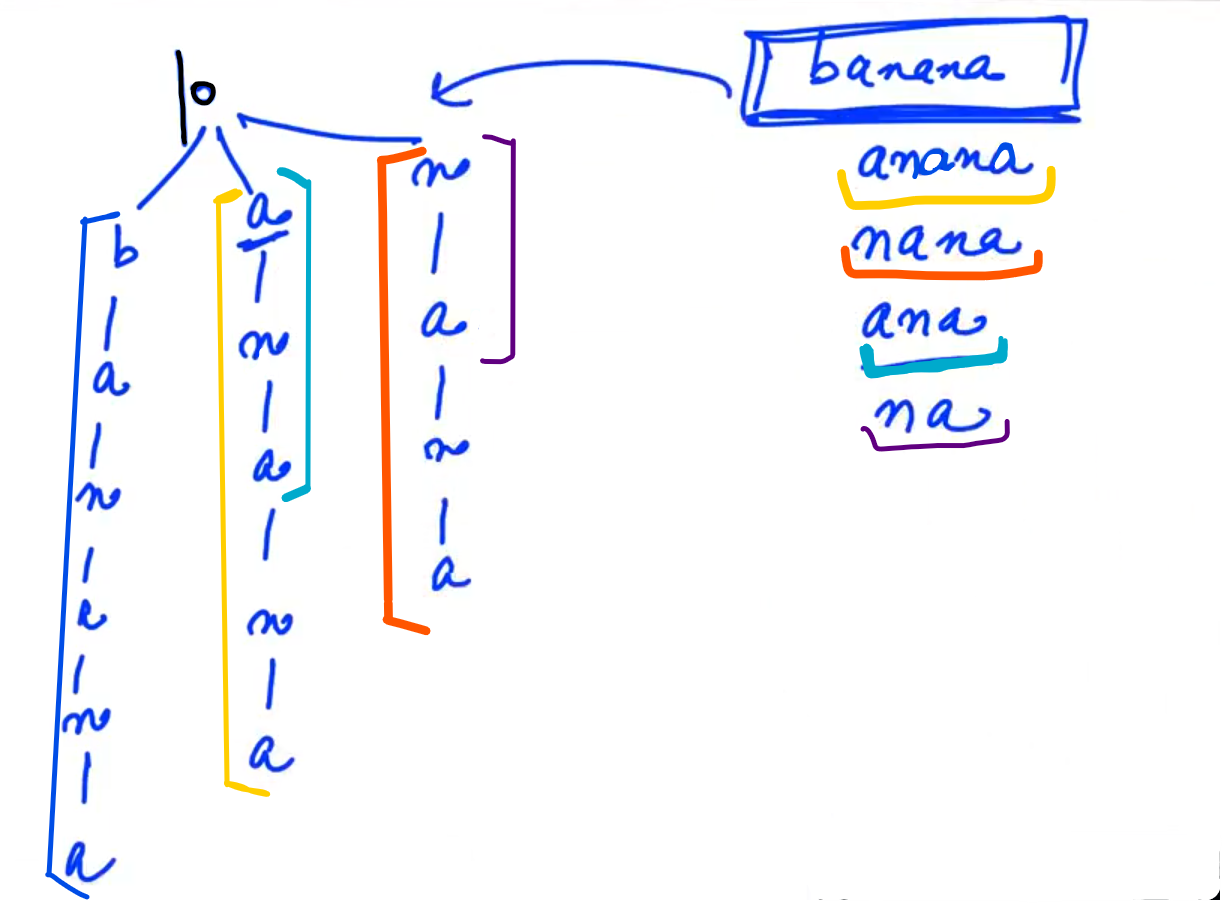 banana
anana
nana
ana
na
b
a
n
a
n
a
a
n
a
n
a
n
a
n
a